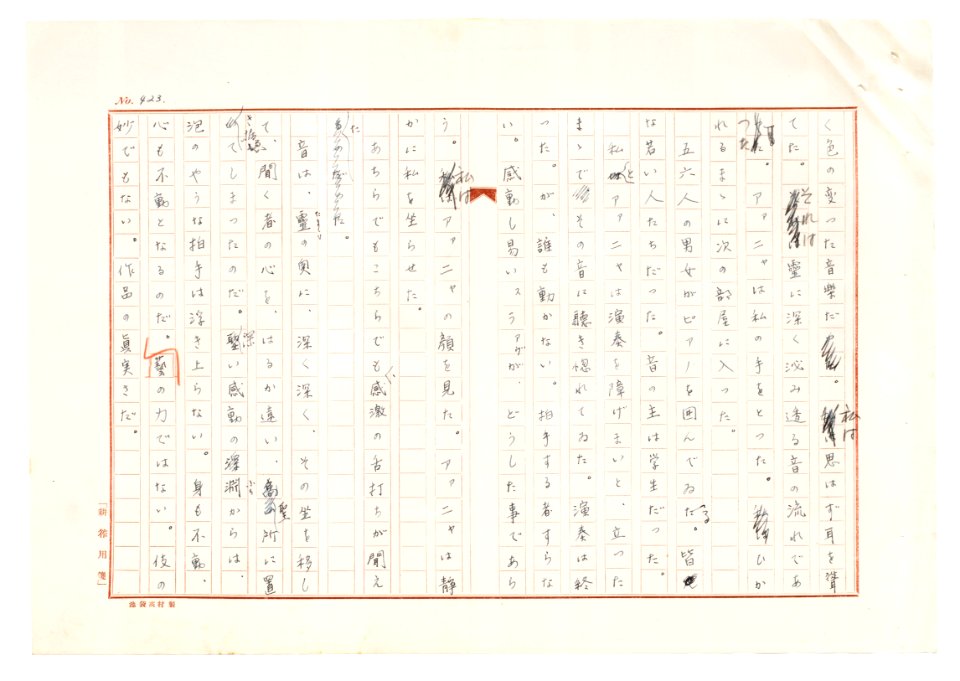 No. 423.
く色の変つた音樂だ。私は思はず耳を聳
てた。それは靈に深く泌み透る音の流れであ
つた。アァニャは私の手をとつた。ひか
れるまゝに次の部屋に入つた。
五六人の男女がピアノを囲んでゐる。皆
な若い人たちだつた。音の主は学生だつた。
私とアァニャは演奏を障げまいと、立つた
まゝでその音に聽き惚れてゐた。演奏は終
つた。が、誰も動かない。拍手する者すらな
い。感動し易いスラアヴが、どうした事であら
う。私はアァニャの顔を見た。アァニャは静
かに私を坐らせた。
あちらでもこちらでも感激の舌打ちが聞え
た。
音は、靈の奥に、深く深く、その坐を移し
て、聞く者の心を、はるか遠い、聖所に置
き捨てしまつたのだ。深い感動の深淵からは、
泡のやうな拍手は浮き上らない。身も不動、
心も不動となるのだ。藝の力ではない。伎の
妙でもない。作品の眞実さだ。